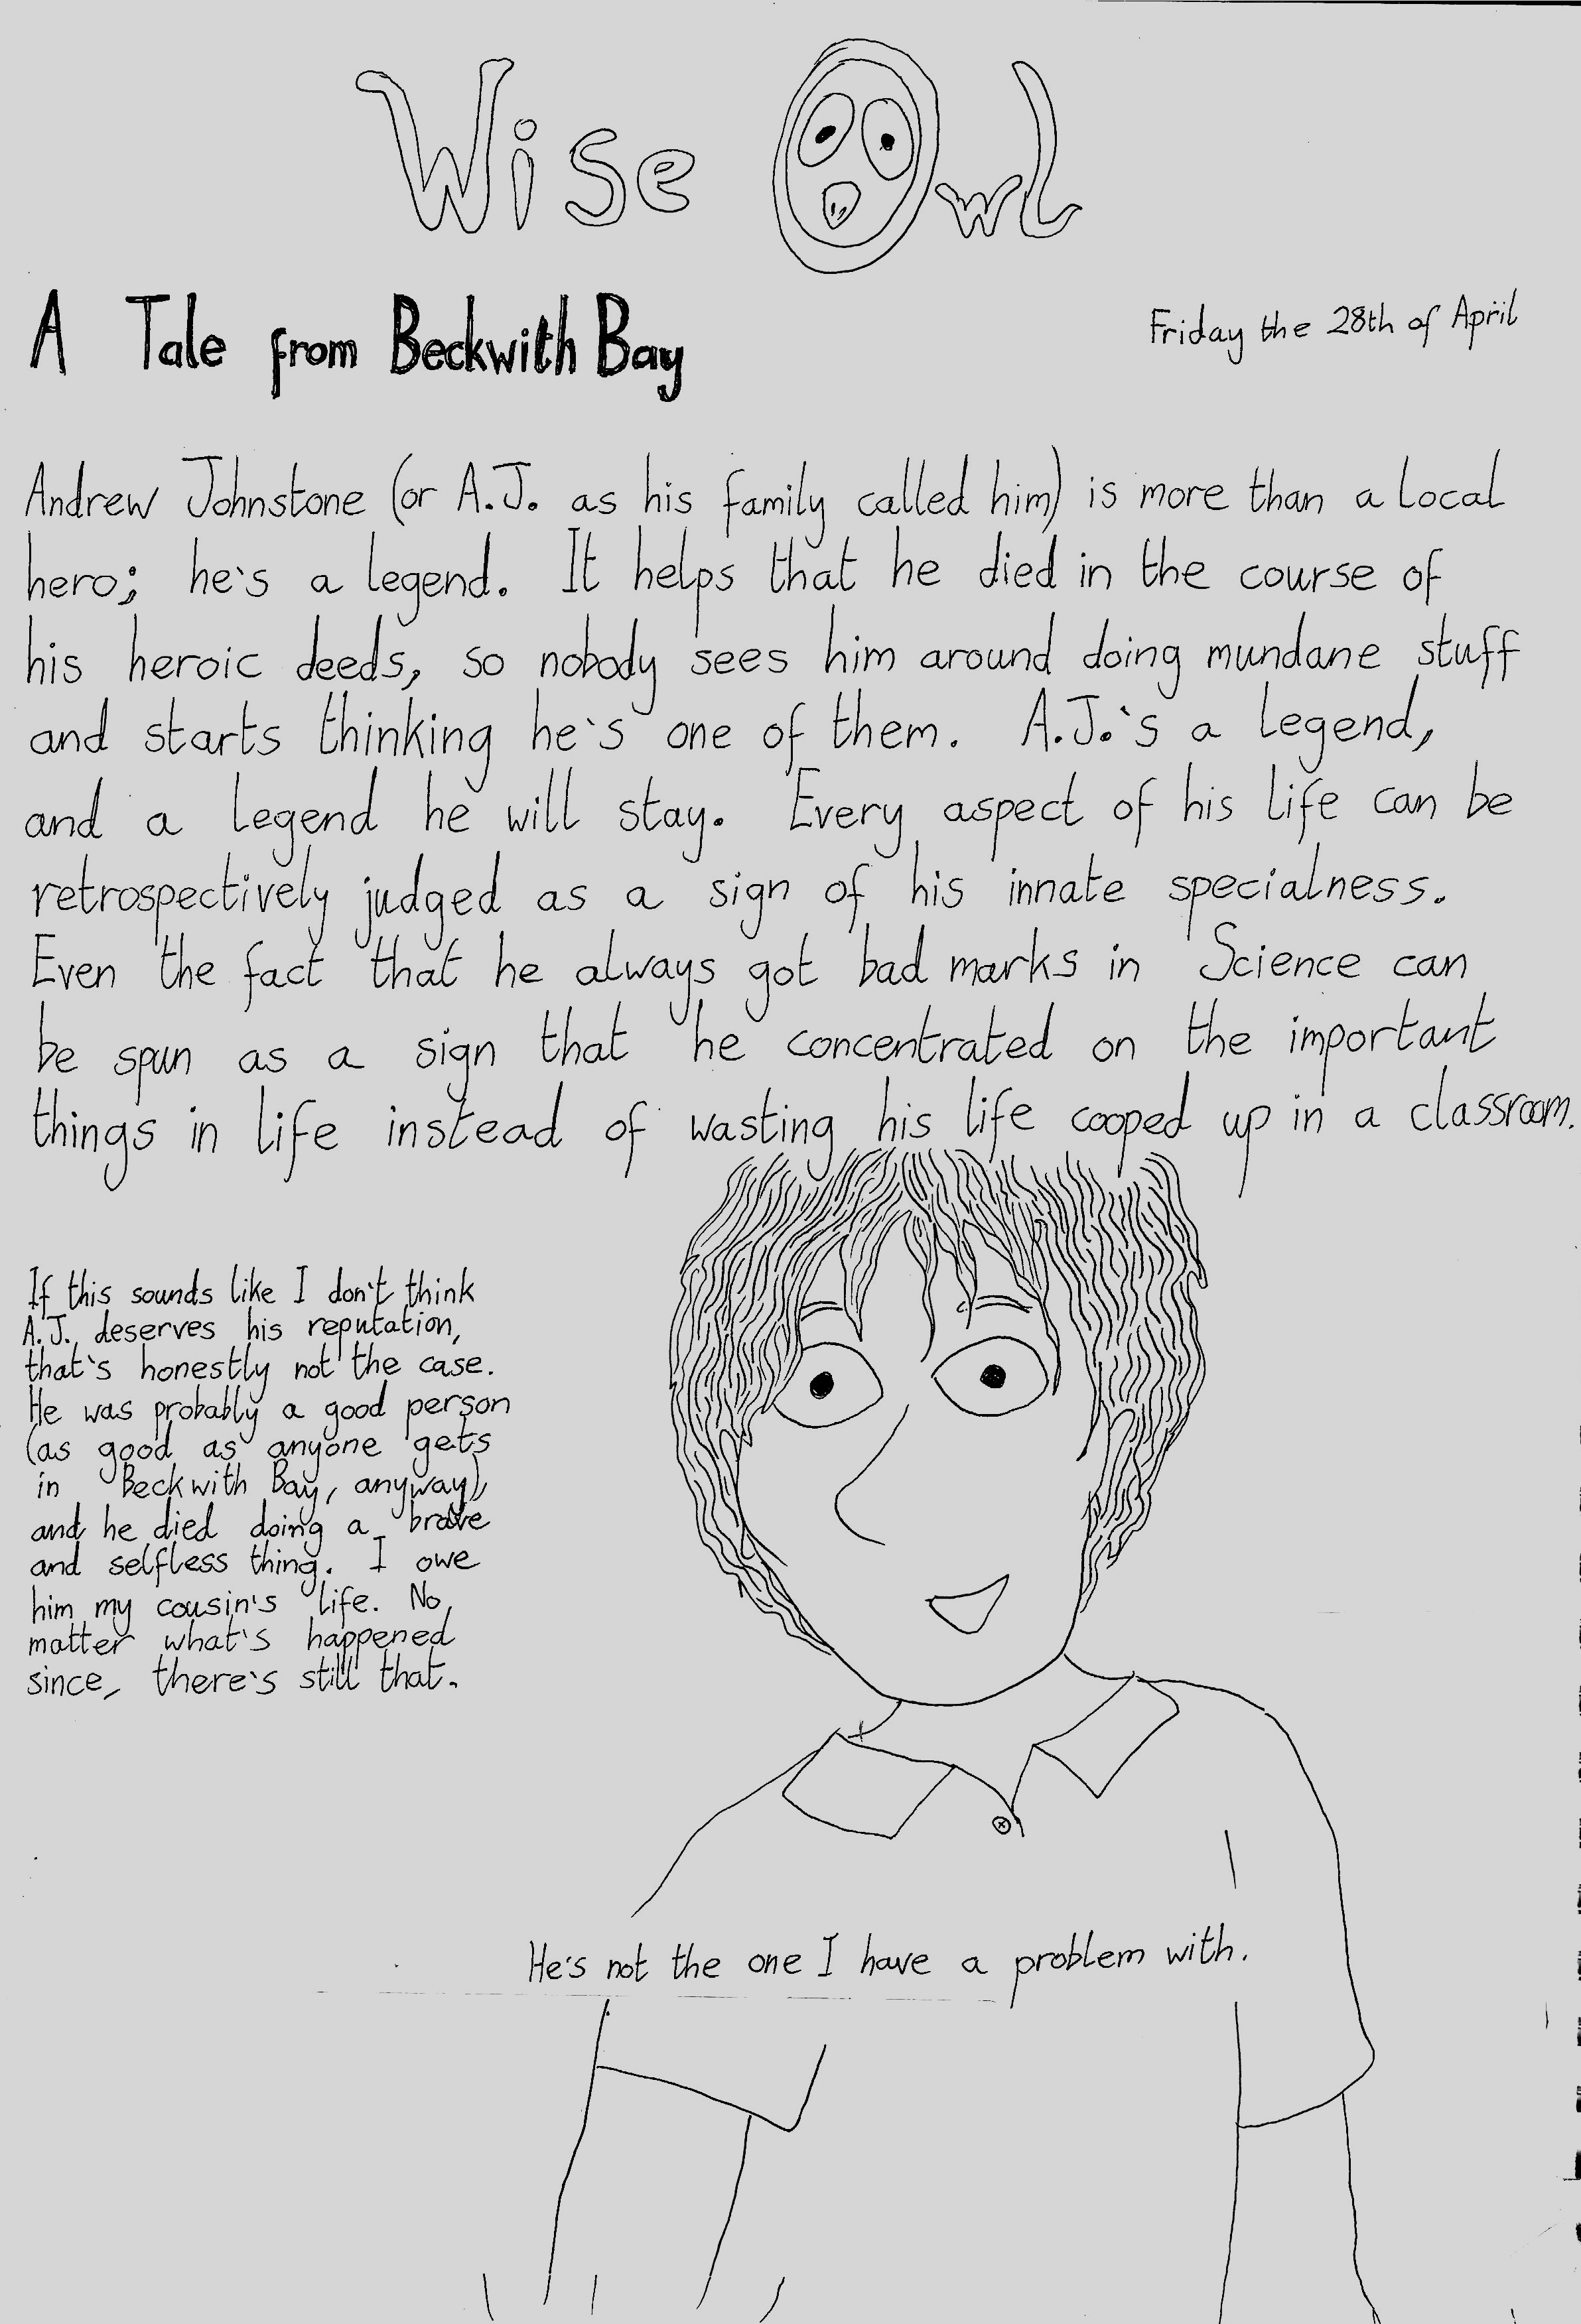 Wise Owl
A Tale from Beckwith Bay
Friday the 28th of April
Andrew Johnstone (or A.J. as his family called him) is more than a local
hero; he's a legend. It helps that he died in the course of
his heroic deeds, so nobody sees him around doing mundane stuff
and starts thinking he's one of them. A.J.'s a legend,
and a legend he will stay. Every aspect of his life can be
retrospectively judged as a sign of his innate specialness.
Even the fact that he always got bad marks in Science can
be spun as a sign that he concentrated on the important
things in life instead of wasting his life cooped up in a classroom.
If this sounds like I don't think
A.J. deserves his reputation,
that's honestly not the case.
He was probably a good person
(as good as anyone gets
in Beckwith Bay, anyway),
and he died doing a brave
and selfless thing. I owe
him my cousin's life. No
matter what's happened
since, there's still that.
He's not the one I have a problem with.